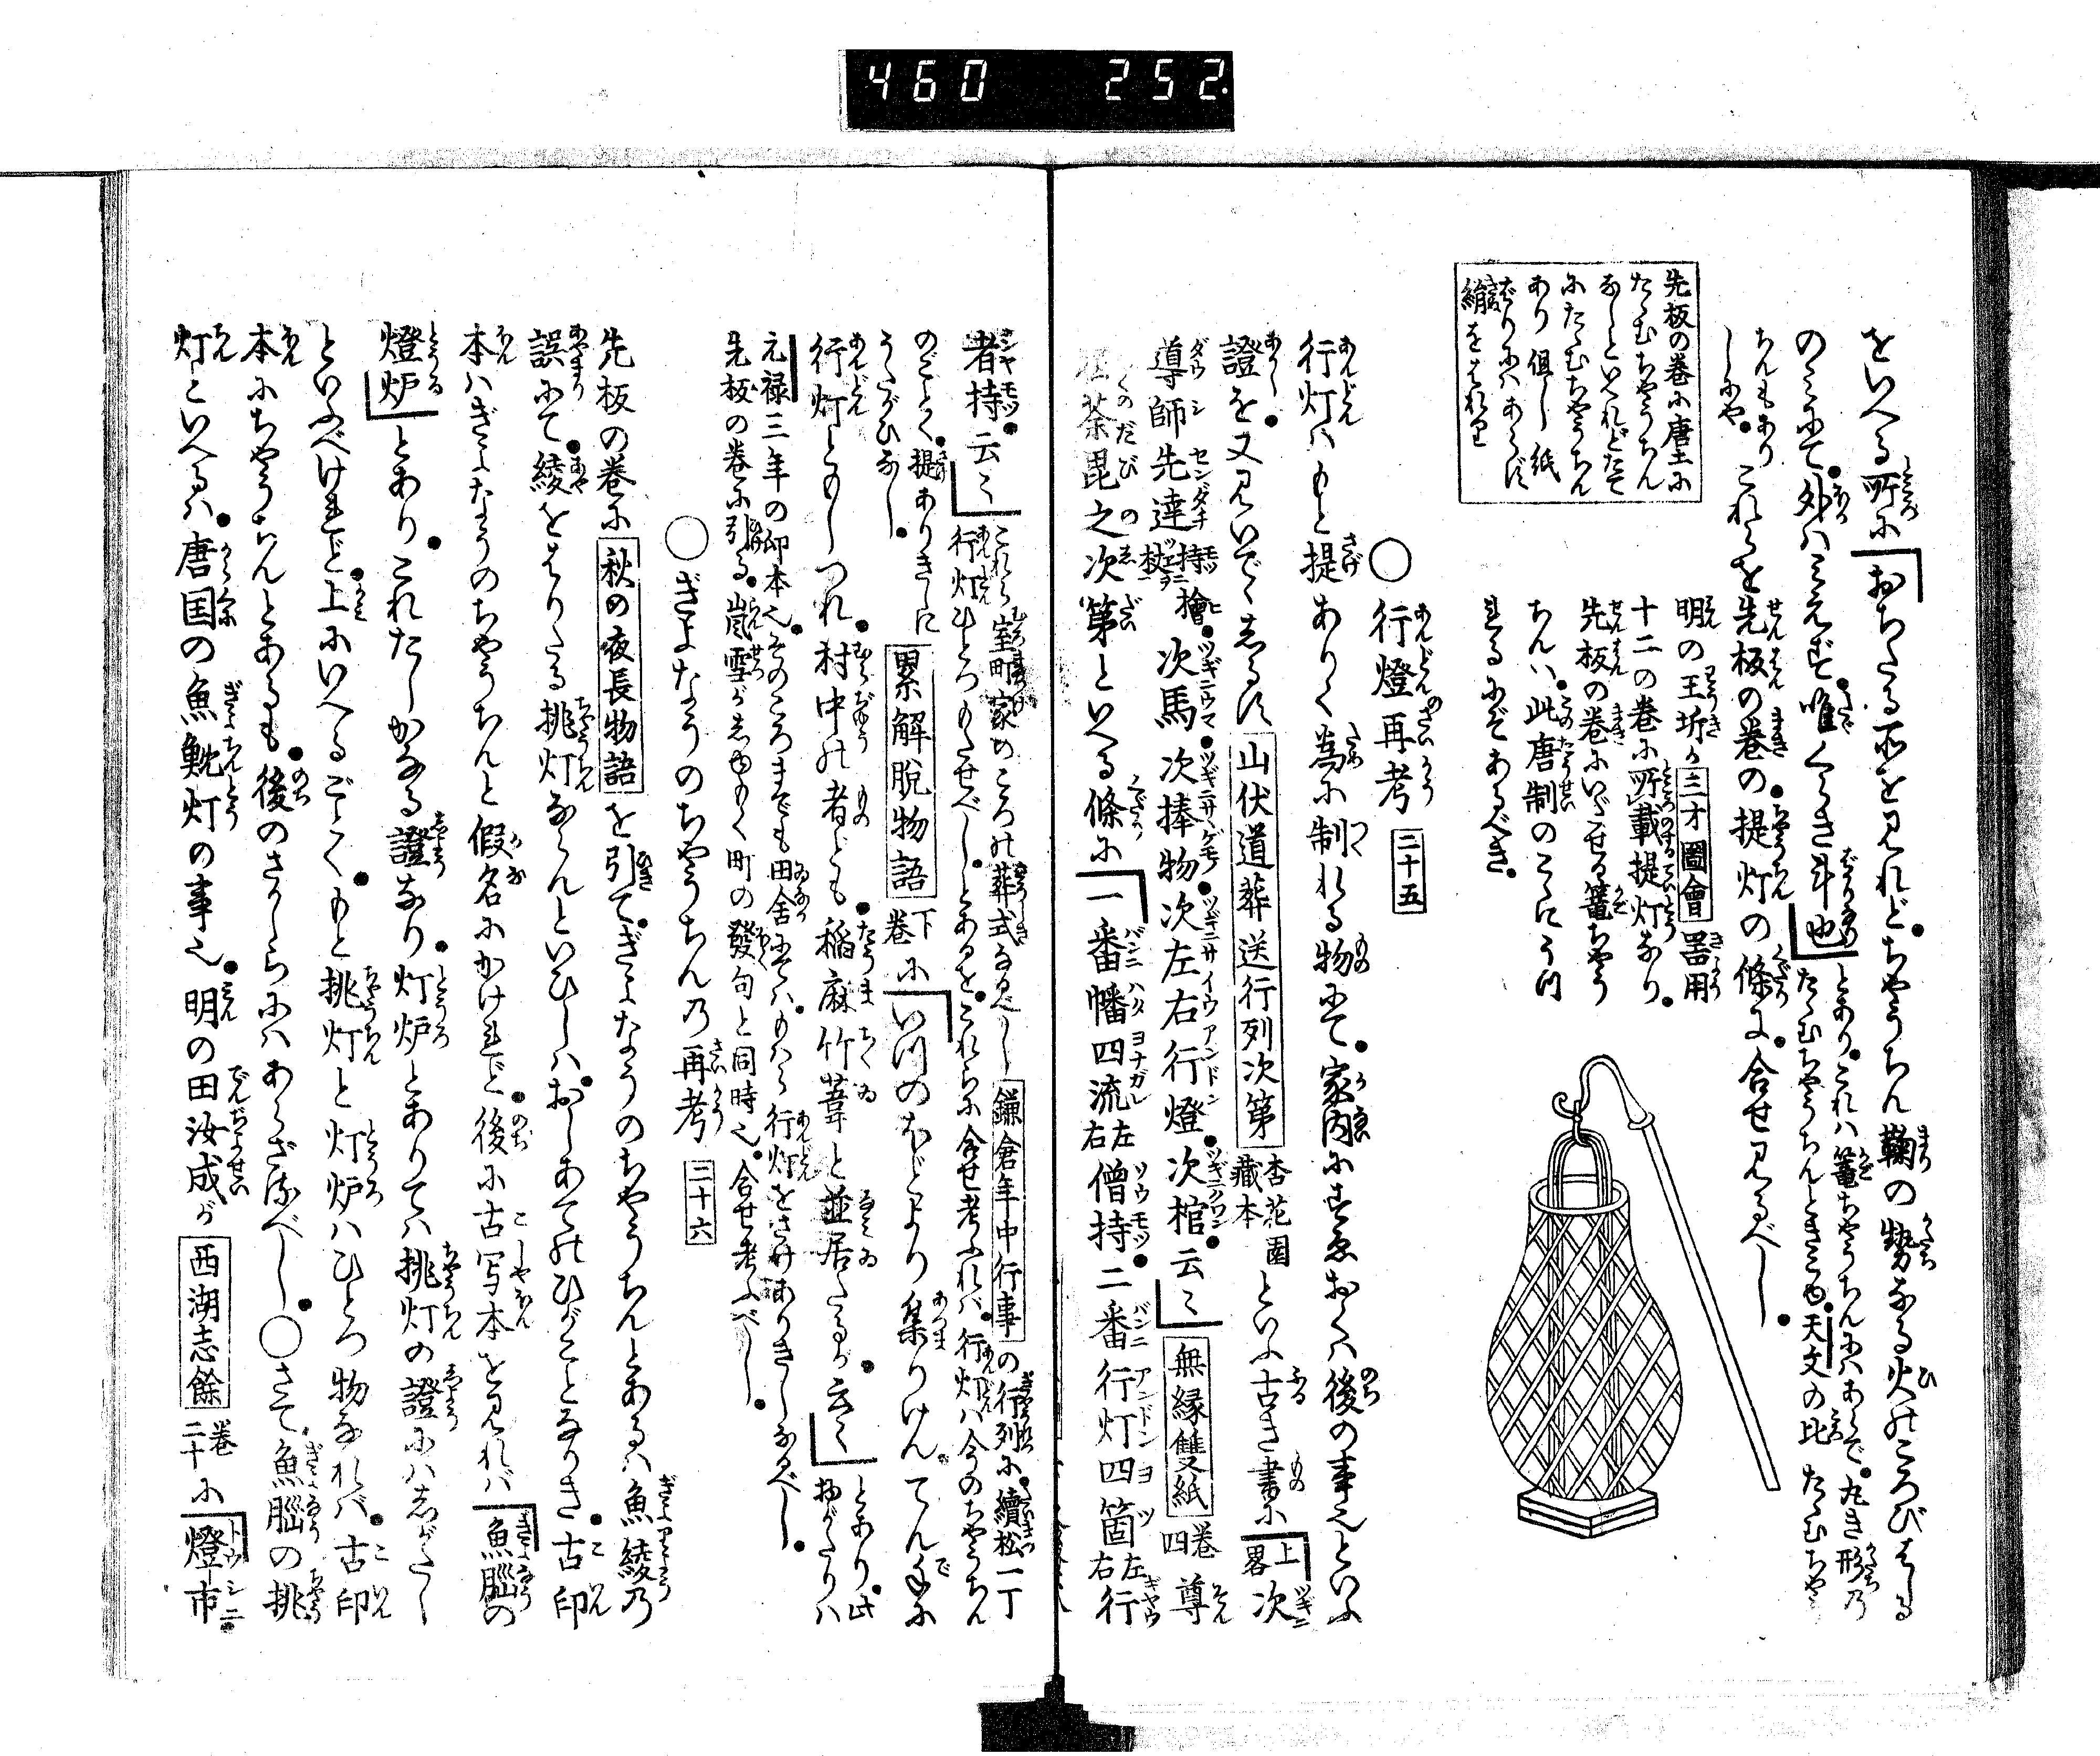 460 252.
をいへる所に「おちたる所を見れど、ちやうちん鞠の勢なる火のころびはしる
のみにて、外はみえず、唯くらき斗也」とあり、これは籠ちやうちんにはあらで、丸き形の
たゝむちやうちんときこゆ、天文の比たゝむちや
ちんもあり
しにや、これらを先板の巻の提灯の條に、合せ見るべし
明の王圻が三才圖會器用
十二の巻に所載提灯なり、
先板の巻にいだせる籠ちやう
ちんハ、此唐制のこゝにうつ
れるにぞあるべき、
先板の巻に唐土に
たゝむちやうちん
なしといへれどたて
にたゝむちやうちん
あり但し紙
ばりにハあらず
絹をはれり
○行燈再考 二十五
行灯ハもと提ありく為に制れる物にて、家内にすゑおくハ後の事也といふ
證を又見いでゝしるす 山伏道葬送行列次第 杏花園藏本 といふ古き書に「上畧 次
導師先達持檜杖 次馬 次捧物 次左右行燈 次棺 云々」 無縁雙紙 巻四 尊
茶毘之次第といへる條に「一番幡四流左右僧持 二番行灯四箇左右行
者持 云々」これら室町家のころの葬式なるべし 鎌倉年中行事の行列に、續松一丁
行灯ひとつもたせべし、とあるを、これらに合せ考ふれバ、行灯ハ今のちやうちん
のごとく、提ありきしに
うたがひなし、累解脱物語 下巻に「いつのほどより集りけん、てん手に
行灯ともしつれ、村中の者ども、稲麻竹葦と並居たるが、云々」とあり、此
物がたりハ
元禄三年の印本也、そのころまでも田舎にてハ、もハら行灯をさげありきしなるべし、
先板の巻に引る、嵐雪がしゆもく町の發句と同時也、合せ考ふべし、
○ぎよなうのちやうちん乃再考 二十六
先板の巻に秋の夜長物語を引て、ぎよなうのちやうちんとあるハ魚綾乃
誤にて、綾をはりたる挑灯ならんといひしハ、おしあてのひがことなりき、古印
本ハぎよなうのちやうちんと假名にかけれど、後に古写本を見れバ「魚脳の
燈炉」とあり、これたしかなる證なり、灯炉とありてハ挑灯の證にハしがたし
といふべけれど、上にいへるごとく、もと挑灯と灯炉ハひとつ物なれバ、古印
本にちやうちんとあるも、後のさかしらにハあらざるべし、○さて魚脳の挑
灯といへるハ、唐国の魚魫灯の事也、明の田汝成が西湖志餘 巻二十に「燈市